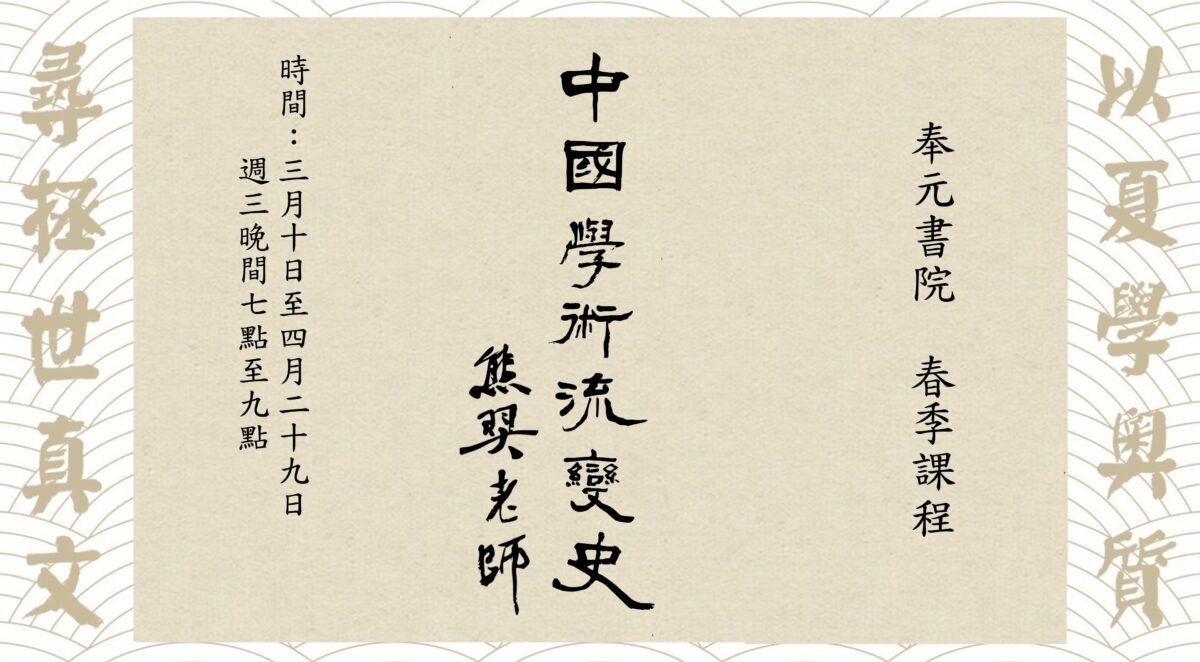 以夏學奧質
奉元書院 春季課程
中國學術流變史
熊羿老師
時間：三月十日至四月二十九日
週三晚間七點至九點
尋拯世真文